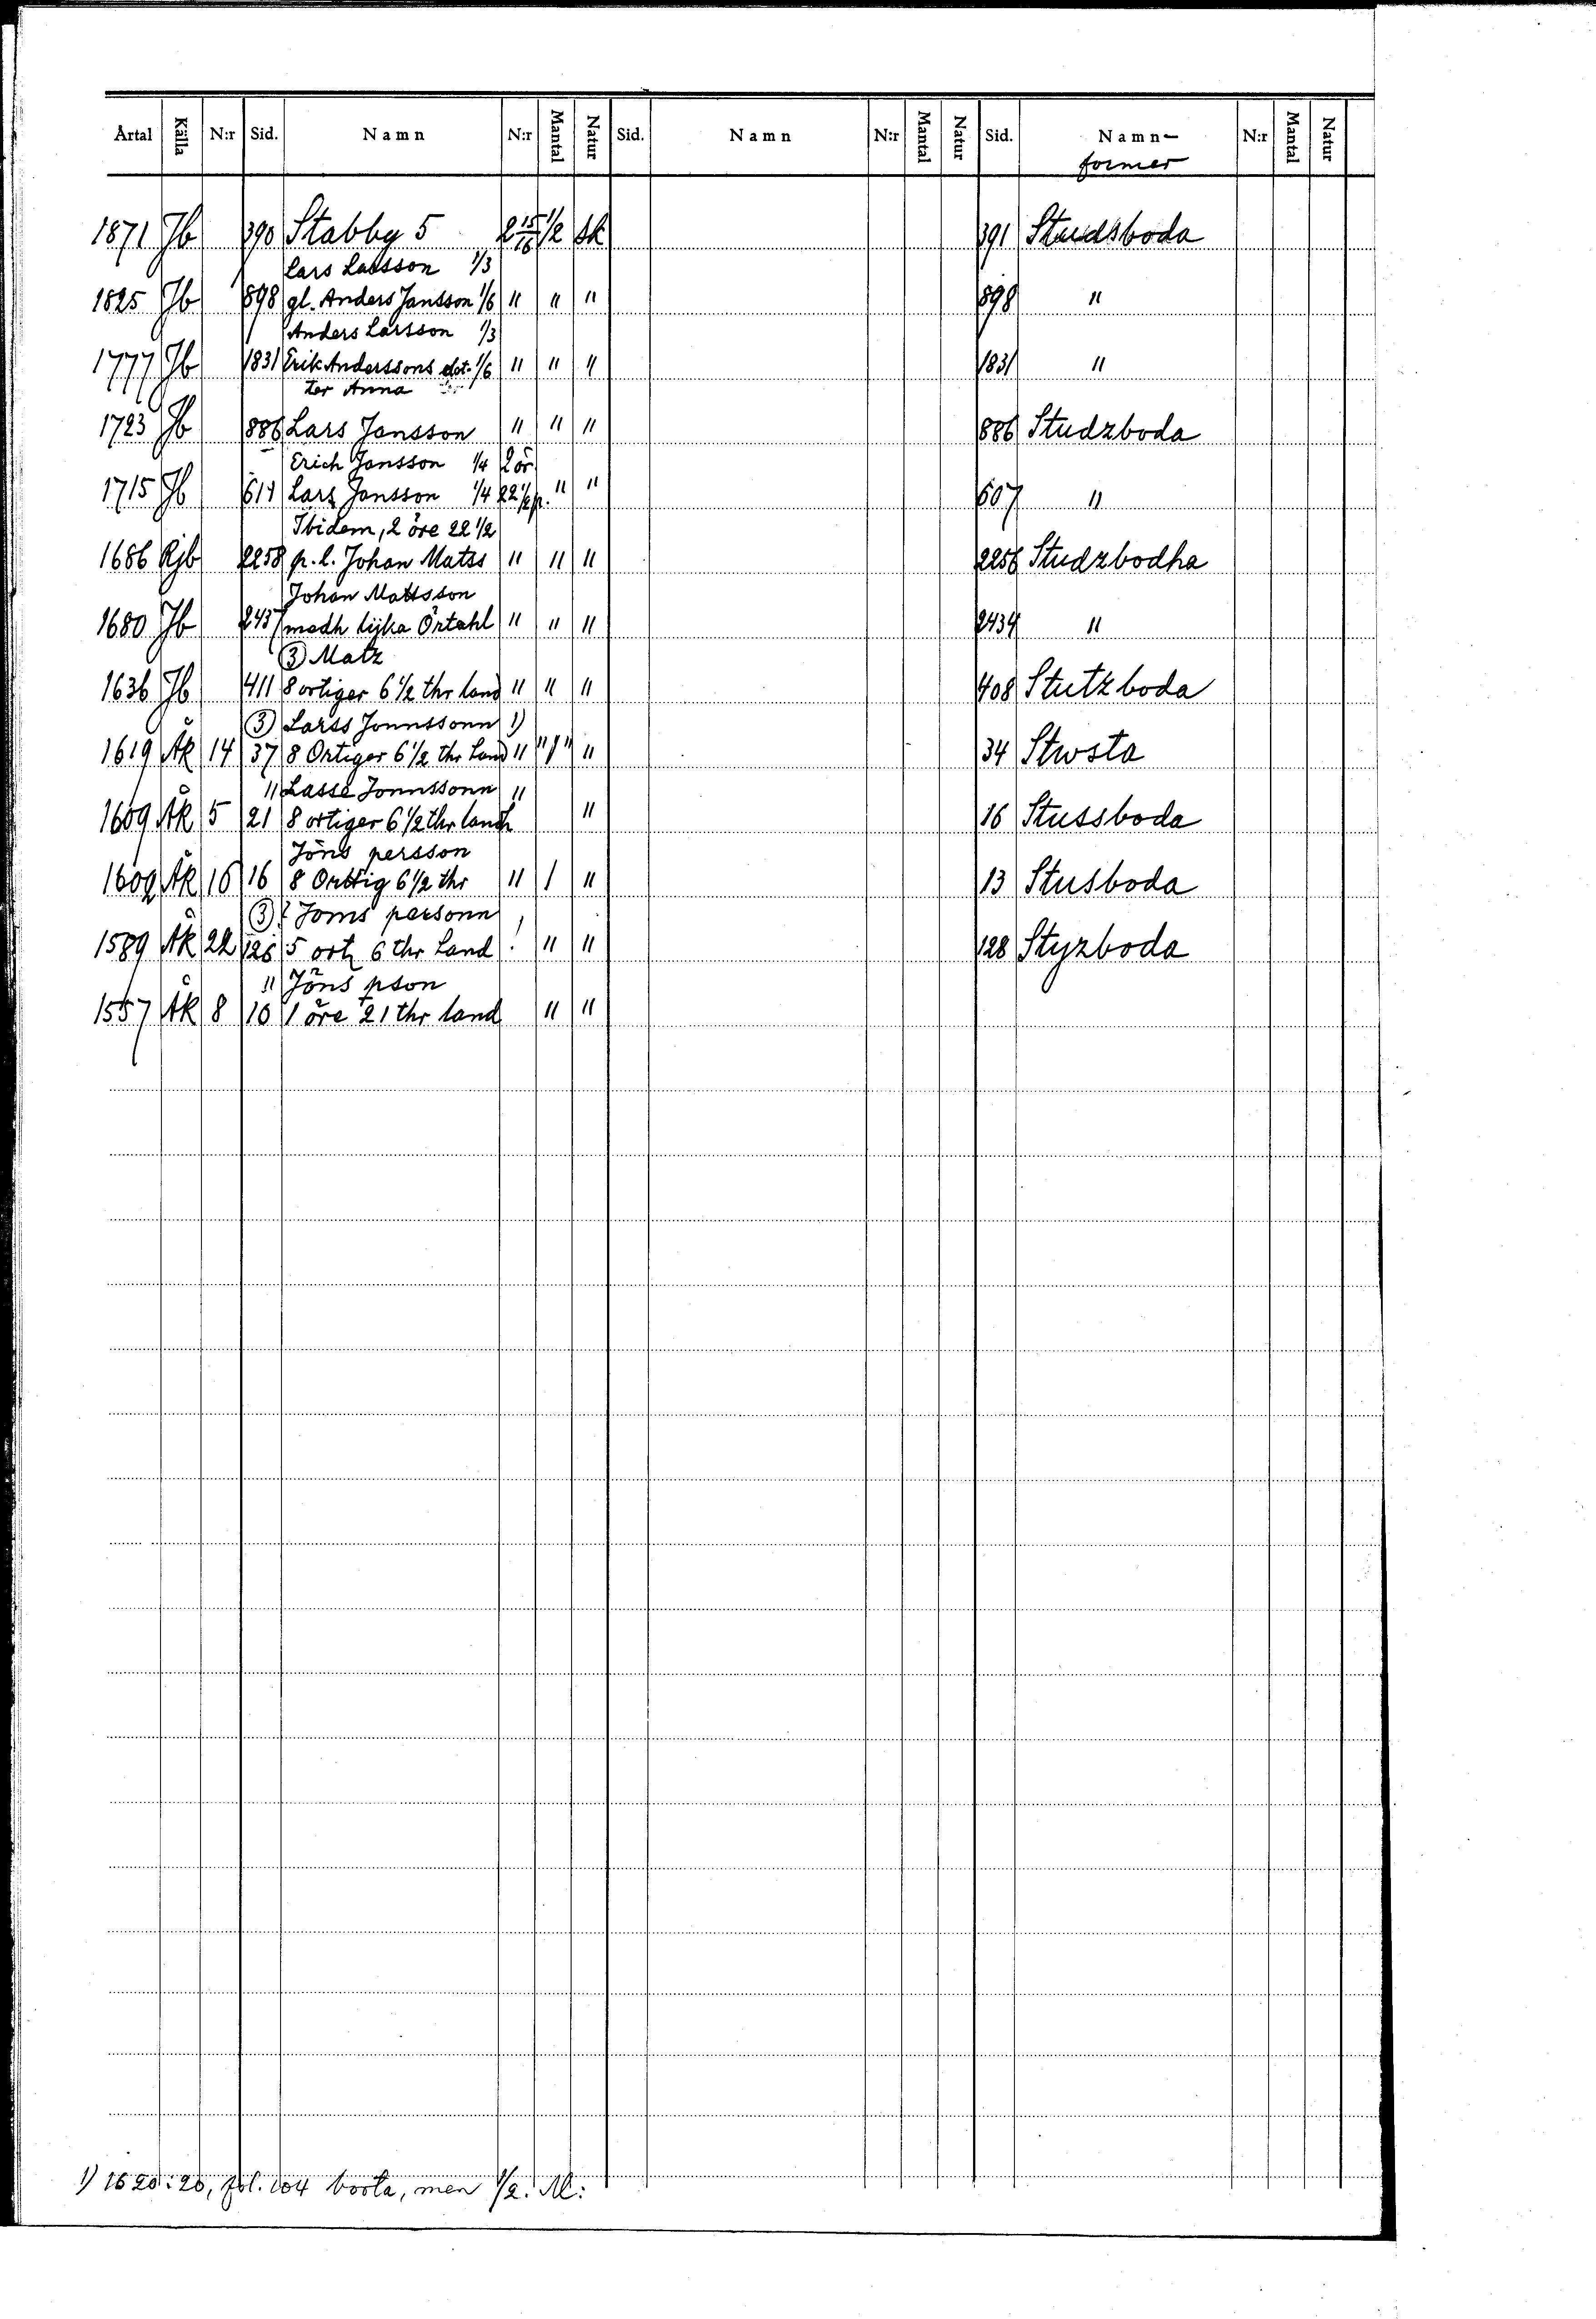 Årtal Källa N:r Sid. Namn N:r Mantal Natur Sid. Namn N:r Mantal Natur Sid. Namn- N:r Mantal Natur
former
1871 Jb 390 Stabby 5 2 15/16 1/2 sk 391 Studsboda
Lars Larsson 1/3
1825 Jb 898 gl. Anders Jansson 1/6 " " " 898 "
Anders Larsson 1/3
1777 Jb 1831 Erik Anderssons dot- 1/6 " " " 1831 "
ter Anna
1723 Jb 886 Lars Jansson " " " 886 Studzboda
Erich Jansson 1/4 2 ör
1715 Jb 611 Lars Jansson 1/4 22 1/2 p. " " 607 "
Ibidem, 2 öre 22 1/2
1686 Rjb 2258 p. l. Johan Matss " " " 2256 Studzbodha
Johan Mattsson
1680 Jb 2437 medh lijka Örtahl " " " 2434 "
(3) Matz
1636 Jb 411 8 ortiger 6 1/2 thr land " " " 408 Stutzboda
(3) Larss Jonnssonn 1)
1619 Åk 14 37 8 Ortiger 6 1/2 thr Land " "1" " 34 Stwsta
" Lasse Jonnssonn "
1609 Åk 5 21 8 ortiger 6 1/2 thr landh " 16 Stussboda
Jöns persson
1602 Åk 10 16 8 Orttig 6 1/2 thr " 1 " 13 Stusboda
(3) { Joms personn
1589 Åk 22 126 5 ortz 6 thr Land ! " " 128 Styzboda
" Jöns pson
1557 Åk 8 10 1 öre 21 thr land " "
1) 1620:20, fol. 104 borta, men 1/2. M: